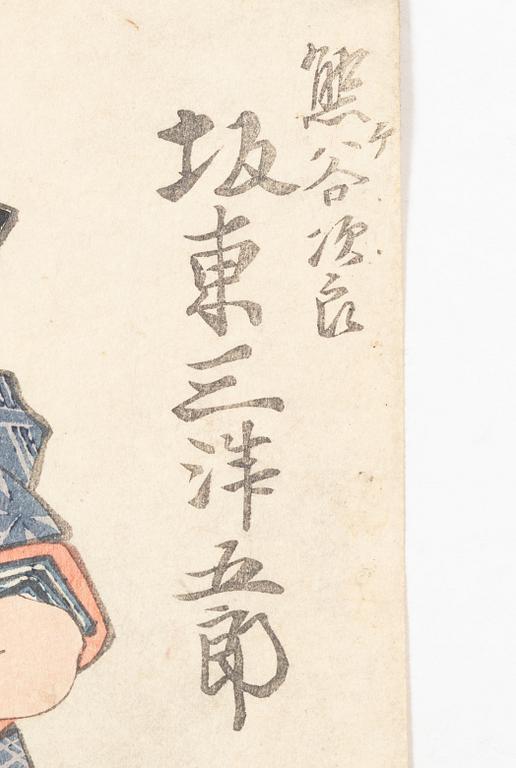 熊ケ谷次郎
坂東三津五郎